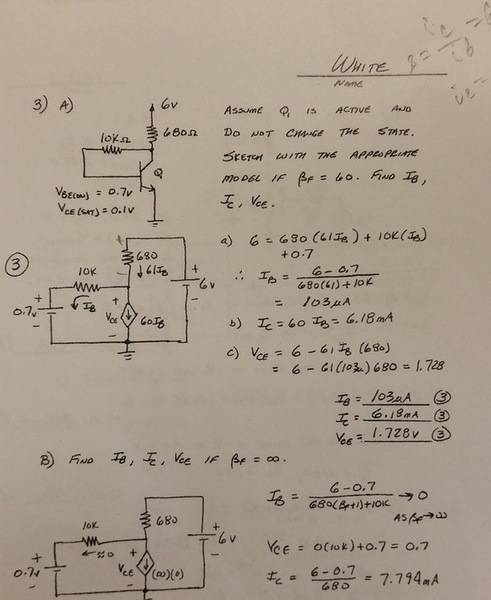 WHITE
NAME
3) A)
6V
680Ω
10KΩ
Q
VBE(ON) = 0.7V
VCE(SAT) = 0.1V
ASSUME Q, IS ACTIVE AND
DO NOT CHANGE THE STATE.
SKETCH WITH THE APPROPRIATE
MODEL IF βF = 60. FIND IB,
IC, VCE.
3
10K
680
↓61IB
+
6V
-
+
0.7V
-
IB
+
VCE
-
60IB
a) 6 = 680(61IB) + 10K(IB)
+0.7
∴ IB = 6-0.7 / 680(61)+10K
= 103μA
b) IC = 60 IB = 6.18mA
c) VCE = 6 - 61 IB (680)
= 6 - 61(103μ)680 = 1.728
IB = 103μA 3
IC = 6.18mA 3
VCE = 1.728V 3
B) FIND IB, IC, VCE IF βF = ∞.
10K
680
← ≈0
+
6V
-
+
0.7V
-
+
VCE
-
(∞)(0)
IB = 6-0.7 / 680(βF+1)+10K → 0
AS βF→∞
VCE = 0(10K)+0.7 = 0.7
IC = 6-0.7 / 680 = 7.794mA